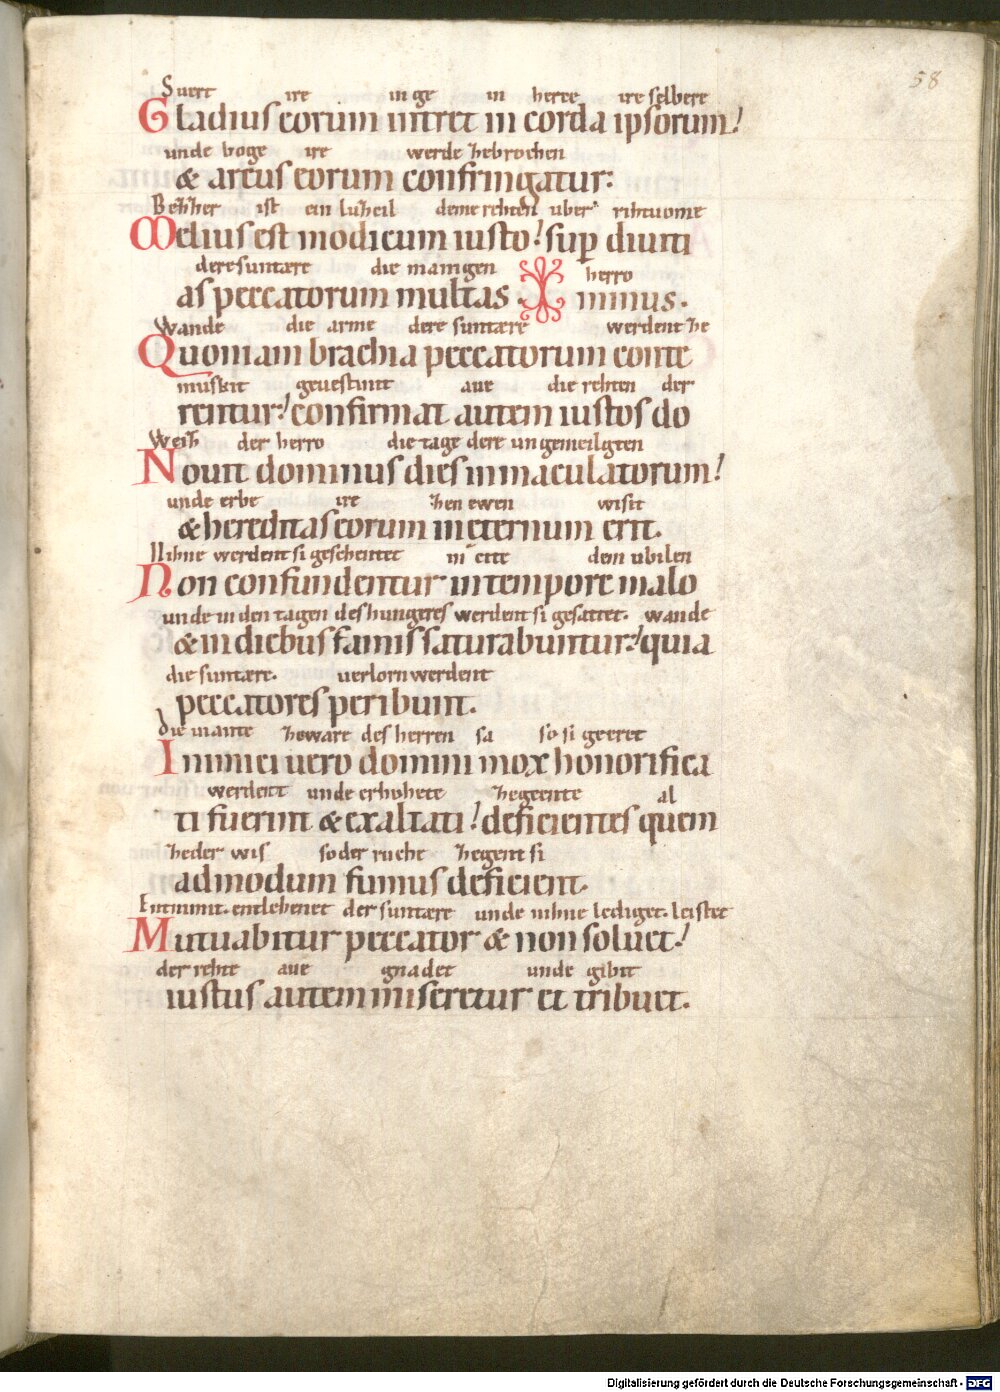 58
Suert ire in ge in herce ire selbere
Gladius eorum intret in corda ipsorum!
unde boge ire werde zebrochen
& arcus eorum confringatur:
Bezzer ist ein luzzeil deme rehten uber rihtuome
Melius est modicum iusto! sup diuiti
dere suntære die manigen herro
as peccatorum multas. minus.
Wande die arme dere suntære werdent ze
Quoniam brachia peccatorum conte
muskit geuestinit aue die rehten der
rentur! confirmat autem iustos do
Weiz der herro die tage dere ungemeilgten
Nouit dominus dies inmaculatorum!
unde erbe ire zen ewen wisit
& hereditas eorum in eternum erit.
Nihne werdent si geschentet in cite dem ubilen
Non confundentur in tempore malo
unde in den tagen des hungeres werdent si gesattet. wande
& in diebus famis saturabuntur! quia
die suntære. uerlorn werdent
peccatores peribunt.
die uiante zeware des herren sa so si geeret
Inimici uero domini mox honorifica
werdent unde erhohete zegeente al
ti fuerint & exaltati! deficientes quem
zeder wis so der rucht zegent si
admodum fumus deficient.
Entnimit. entlehenet der suntære unde nihne lediget. leistet
Mutuabitur peccator & non soluet!
der rehte aue gnadet unde gibit
iustus autem miseretur et tribuet.
Digitalisierung gefördert durch die Deutsche Forschungsgemeinschaft - DFG